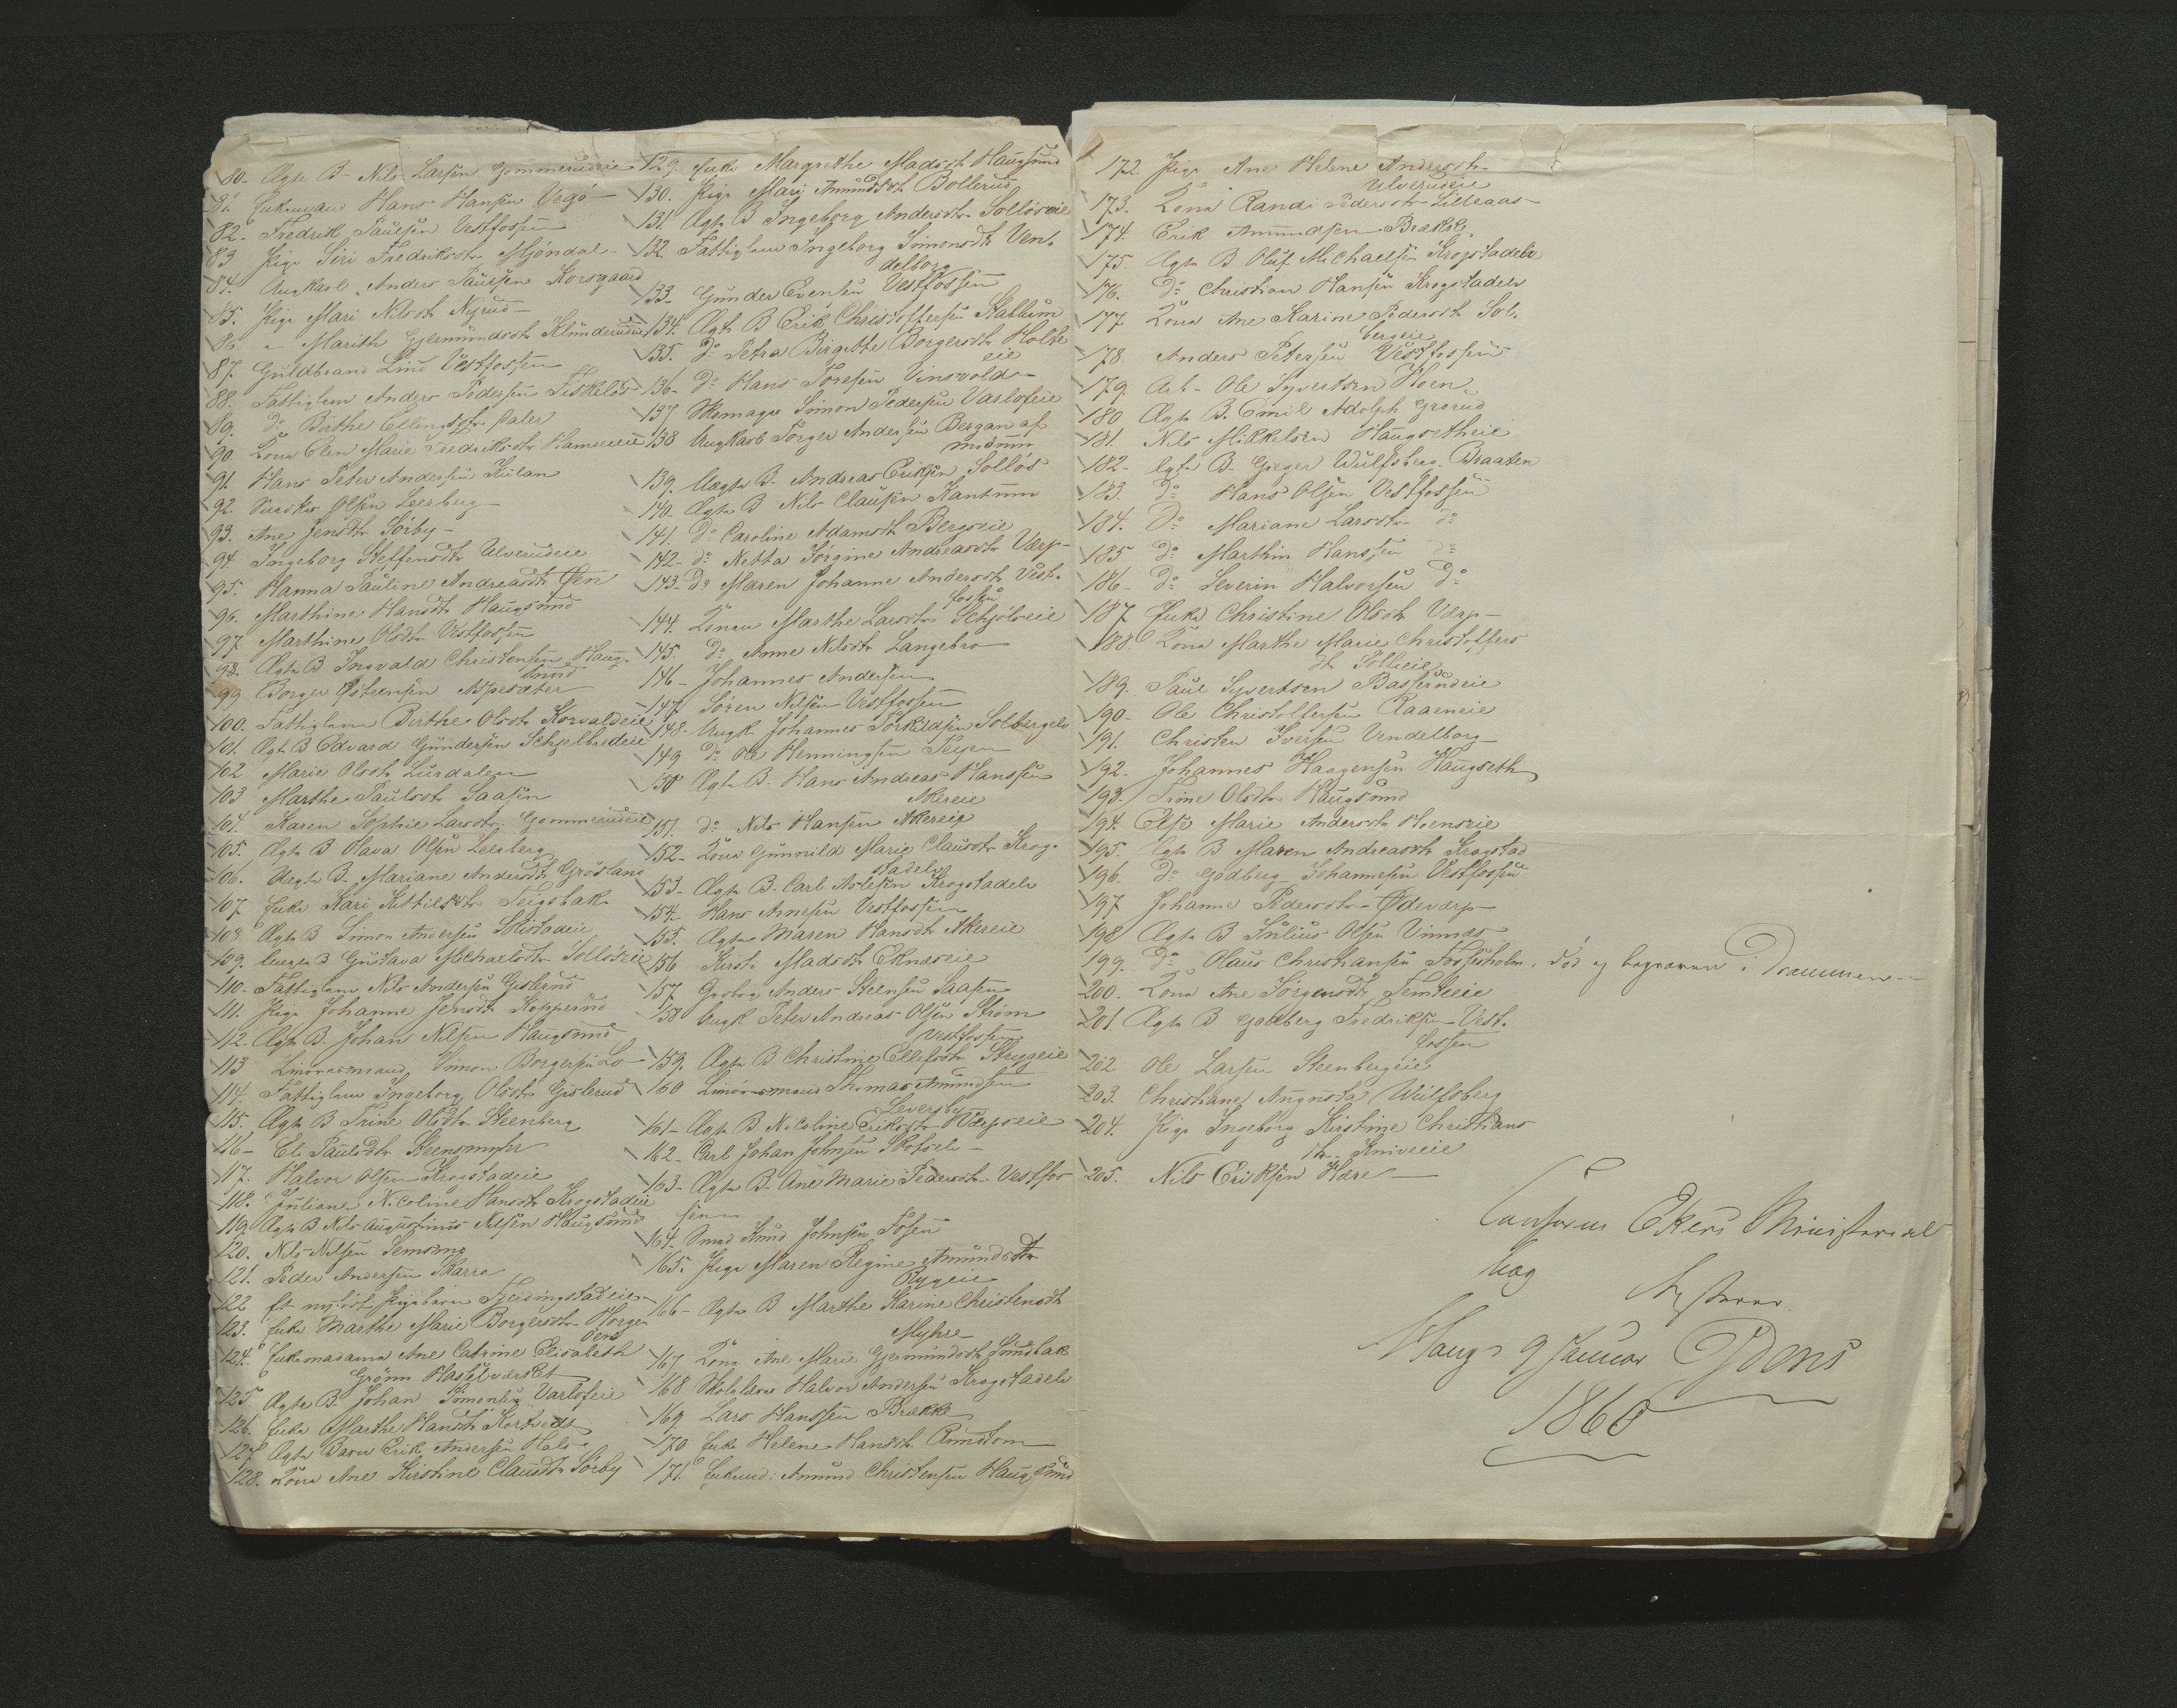 80. Ægte B. Nils Larsen Gommerudeie
81. Enkemand Hans Hansen Vegø
82. Fredrik Paulsen Vestfossen
83 Pige Siri Fredriksdtr Mjøndal
84. Ungkarl Anders Paulsen Korsgaard
85. Pige Mari Nilsdt Nyrud
86 " Marith Gjermundsdt
87. Guldbrand Lind Vestfossen
88. Fattiglem Anders Pedersen Fiskeløs
89. Do Birthe Ellingsdtr
90. Kona Elen Marie Fredriksdtr
91. Hans Peter Andersen
92. Olsen Leerberg
93. Ane Jensdtr Sørby
94. Ingeborg Steffensdtr Ulverudeie
95. Hanna Pauline Andreasdt Øen
96. Marthine Hansdtr Haugsund
97 Marthine Olsdtr Vestfossen
98. Ægte B Ingvald Christensen Haug-
sund
99 Borger Østensen Aspesæter
100. Fattiglem Birthe Olsdtr Korvaldeie
101. Ægte B Edvard Gundersen Schjelbredeie
102 Marie Olsdtr Lurdalen
103 Marthe Paulsdtr Saasen
104. Karen Sophie Larsdtr. Gommerudeie
105. Ægte B Olava Olsen Leerberg
106. Uegte B. Mariane Andersdt Grøsland
107 Enke Kari Kittilsdtr Teigsbak
108 Ægte B Simon Andersen
109. Uegte B Gustava Michaelsdtr Solløseie
110. Fattiglem Nils Andersen Gislerud
111. Pige Johanne Jensdt Hopperud
112. Ægte B. Johan Nilsen Haugsund
113 Simon Borgersen Lo
114. Fattiglem Ingeborg Olsdtr Gislerud
115. Ægte B Trine Olsdtr Steenberg
116 - Eli Paulsdtr
117. Halvor Olsen Krogstadeie
118. Juliane Nicoline Hansdtr Krogstadeie
119. Ægte B Nils Augustinus Nilsen Haugsund
120. Nils Nilsen
121. Peder Andersen Skarra
122 Et Pigebarn
123. Enke Marthe Marie Borgersdtr Horgen
124. Enkemadame Ane Catrine Elisabeth
Grønn Hasselværket
125. Ægte B. Johan Simensen Varlofeie
126. Enke Marthe Hansdtr
127 Ægte Barn Erik Andersen Hals
128. Kona Ane Kirstine Clausdtr Sørby
129. Enke Margrethe Madsdt Haugsund
130. Pige Mari Amundsdt Bollerud
131. Ægte B Ingeborg Andersdtr Solløseie
132 Fattiglem Ingeborg Simonsdtr Ven-
delborg
133. Gunder Evensen Vestfossen
134. Ægte B Erik Christoffersen Stablum
135. Do Petra Birgitte Borgersdt Holte
eie
136 - Do Hans Toresen Vinsvold
137 Skomager Simon Pedersen Varlofeie
138 Ungkarl Torger Andersen Bergan af
Modum
139. Uægte B. Andreas Eriksen Solløs
140. Ægte B Nils Clausen Kantum
141. Do Caroline Adamsdt Bergseie
142 - do Netta Jørgine Andreasdtr Værp
143 - Do Maren Johanne Andersdt Vest-
fossen
144. Konen Marthe Larsdtr Schjølseie
145 do Anne Nilsdt Langebro
146 - Johannes Andersen
147. Søren Nilsen Vestfossen
148. Ungk Johannes Torkildsen Solbergelv
149 do Ole Henningsen
150 Ægte B. Hans Andreas Hanssen
Akereie
151. do Nils Hansen Akereie
152 - Kona Gunnild Marie Clausdtr Krog-
stadelv
153 - Ægte B. Carl Aslesen Krogstadelv
154 - Hans Arnesen Vestfossen
155. Ægte Maren Hansdt Akereie
156 Kirsti Madsdt Eknæseie
157 Anders Steensen Saasen
158 Ungk Peter Andreas Olsen Strøm
Vestfossen
159. Ægte B Christine Ellefsdtr Strygeie
160 Thomas Amundsen
Leversby
161 - Ægte B Nicoline Eriksdtr Værpseie
162 - Carl Johan Johnsen Skotselv -
163 - Ægte B. Ane Marie Pedersdtr Vestfos-
sen
164. Smed Knud Johnsen Fosen
165. Pige Maren Regine Amundsdtr
Rygeie
166 - Ægte B Marthe Karine Christensdt
Myhre
167 Kona Ane Marie Gjermundsdt Sundbak
168 Skolelærer Halvor Andersen Krogstadelv
169 Lars Hanssen Brække
170 Enke Helene Hansdt Rundtom
171. Enkemd: Amund Christensen Haugsund
172 Pige Ane Helene Andersdtr
Ulverudeie
173. Kona Randi Pedersdtr Lilleaas
174. Erik Amundsen Brække
175. Ægte B Oluf Michaelsen Krogstadelv
176. Do Christian Hansen Krogstadelv
177 Kona Ane Karine Pedersdt Sol-
bergeie
178 Anders Petersen Vestfossen
179. Arb - Ole Syvertsen Hoen
180 Ægte B. Emil Adolph Grorud
181. Nils Mikkelsen Haugsetheie
182 - Ægte B. Greger Wulfsberg Braaten
183. Do Hans Olsen Vestfossen
184. Do Mariane Larsdtr do
185 Do Marthin Hanssen do
186 - Do Severin Halvorsen Do
187 Enke Christine Olsdtr Værp
188 Kona Marthe Marie Christoffers
dtr
189. Paul Syvertsen Basserudeie
190 - Ole Christoffersen Raaeneie
191. Christen Iversen Vendelborg
192 - Johannes Haagensen Haugseth
193. Trine Olsdtr Haugsund
194. Else Marie Andersdtr Hoenseie
195. Ægte B Maren Andreasdt Krogstad
196. Do Godberg Johannesen Vestfossen
197 Johanne Pedersdtr Ødeværp
198 Ægte B Julius Olsen Vinnæs
199. Do Olaus Christiansen Fossesholm, død og begraven i Drammen
200. Kona Ane Jørgensdtr
201 Ægte B Godberg Fredriksen Vest-
fossen
202 Ole Larsen Steenbergeie
203. Christiane Augusta Wulfsberg
204. Pige Ingeborg Kirstine Christians
dtr. Kniveeie
205. Nils Eriksen Hære
Conform Ekers Ministerial
bog
Haug 9 Januar
1860